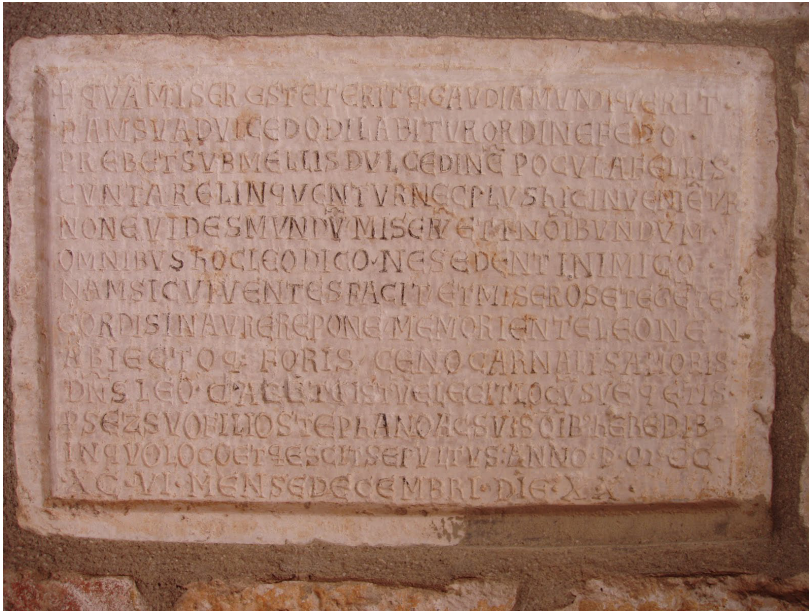 QVAMISER ESTETERIT GAVDIAMVNDI QVERIT
NAMSVADVLCEDODILABITVRORDINEFEDO
PREBETSVBMELLISDVLCEDINE POCVLAFELLIS
CVNTARELINQVENTVRNECPLVS hICINVENIETVR
NONEVIDESMVNDVMISERV BVNDVM
OMNIBVS hOCLEODICO NESEDENTINIMICO
NAMSICVIVENTESFACIT ETMISEROSETEGETES
CORDISINAVREREPONE MEMORIENTELEONE
ABIECTOQ FORIS CENOCARNALISAMORIS
DNS LEO ELEGITLOCV
SVOFILIOSTEPhANOACSVIS hEREDIB
INQVOLOCO SEPVLTVS ANNO D
XC VI MENSEDECEMBRI DIE XX